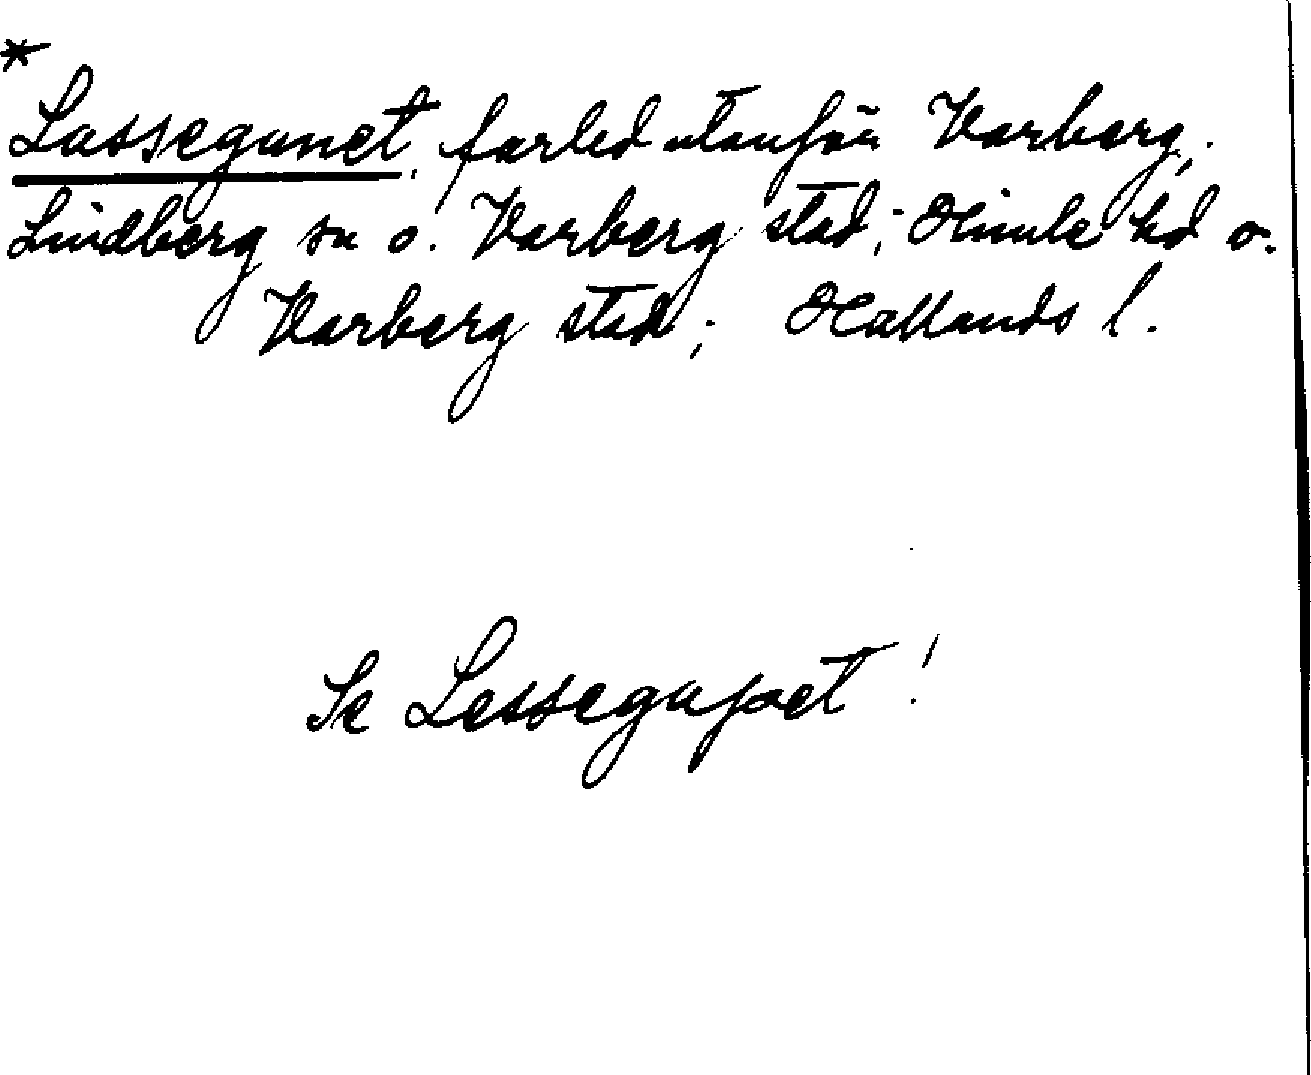 *
Lassegunet, farled utanför Varberg;
Lindberg sn o. Varberg stad; Himle hd o.
Varberg stad; Hallands l.
Se Lessegapet!